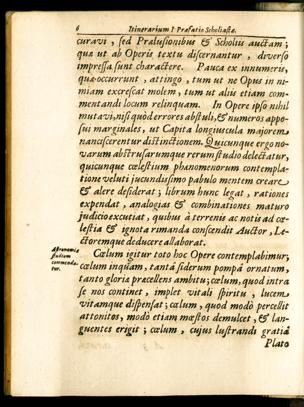 6 Itinerarium I Præfatio Scholiastæ.
curavi, sed Prælusionibus & Scholiis auctam;
quæ ut ab Operis textu discernantur, diverso
impressa sunt charactere. Pauca ex innumeris,
quæ occurrunt, attingo, tum ut ne Opus in ni-
miam excrescat molem, tum ut aliis etiam com-
mentandi locum relinquam. In Opere ipso nihil
mutavi, nisi quòd errores abstuli, & numeros appo-
sui marginales, ut Capita longiuscula majorem
nanciscerentur distinctionem. Quicunque ergo no-
varum abstrusarumque rerum studio delectatur,
quicunque cælestium phænomenorum contempla-
tione veluti jucundissimo pabulo mentem creare
& alere desiderat; librum hunc legat, rationes
expendat, analogias & combinationes maturo
judicio excutiat, quibus à terrenis ac notis ad cæ-
lestia & ignota rimanda conscendit Auctor, Le-
ctoremque deducere allaborat.
Astronomiæ
studium
commenda-
tur.
Cælum igitur toto hoc Opere contemplabimur;
cælum inquam, tantâ siderum pompâ ornatum,
tanto gloria præcellens ambitu; cælum, quod intra
se nos continet, implet vitali spiritu, lucem
vitamque dispensat; cælum, quod modò percellit
attonitos, modò etiam mæstos demulcet, & lan-
guentes erigit; cælum, cujus lustrandi gratiâ
Plato